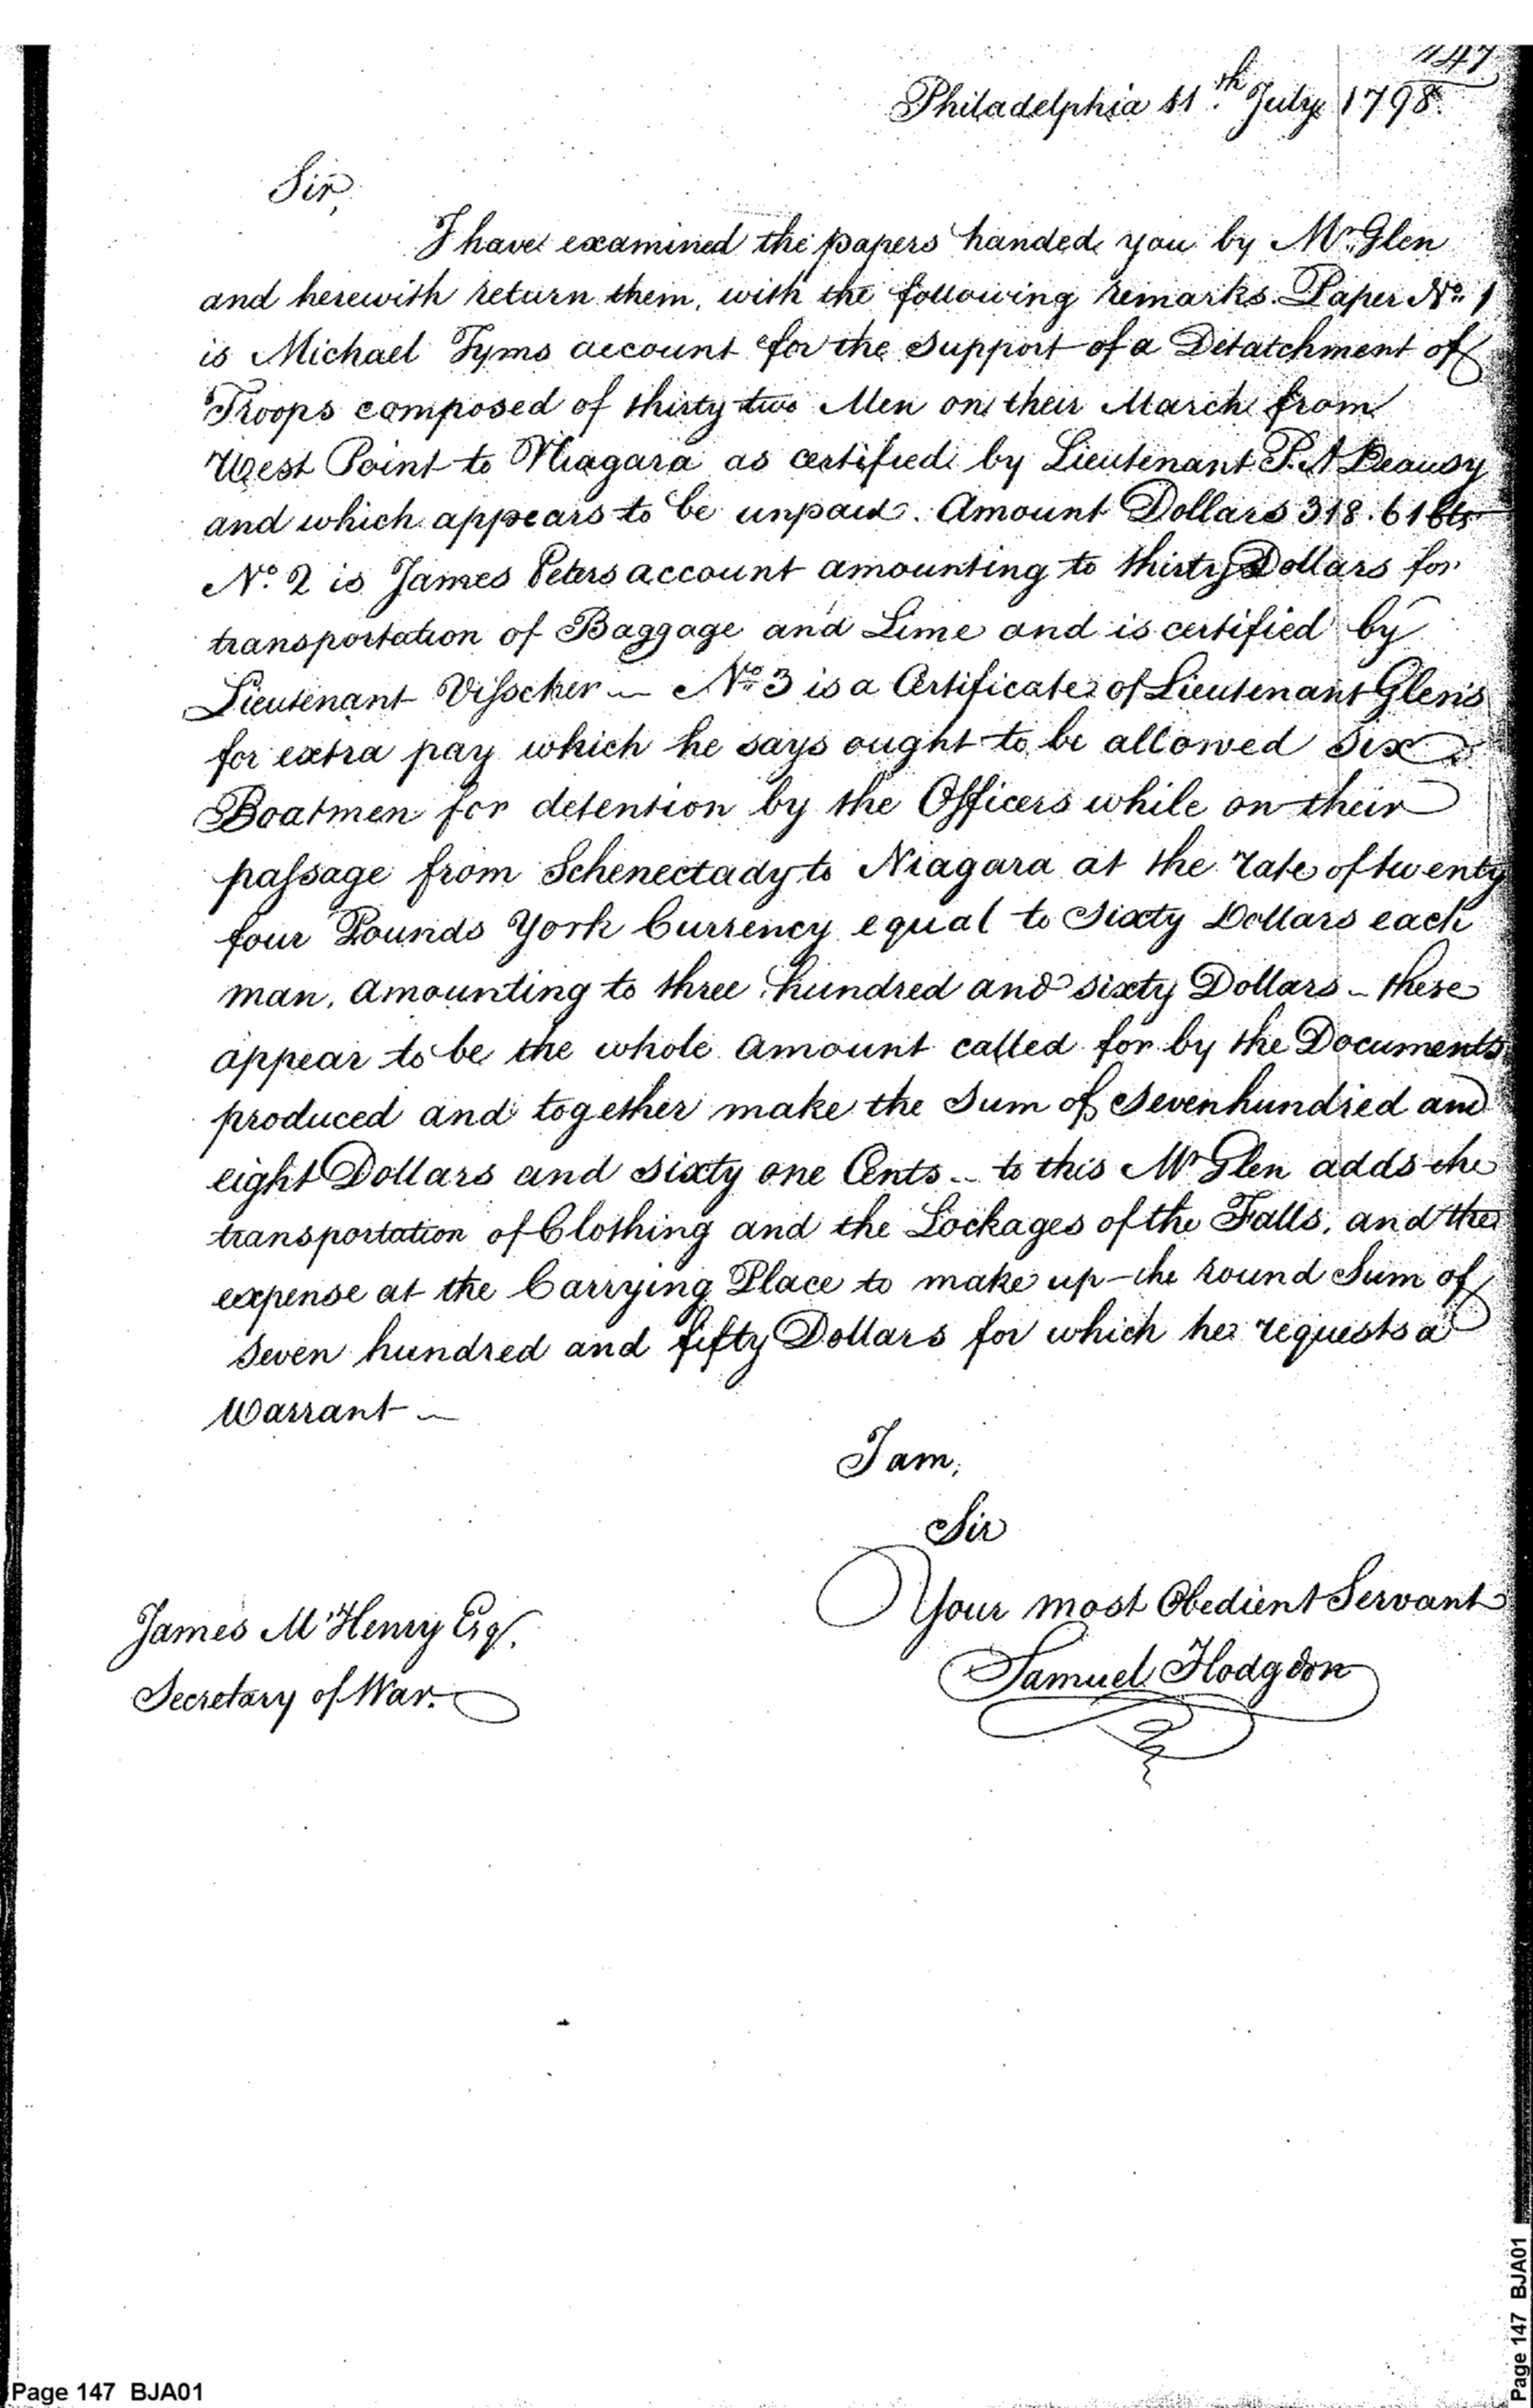 147
Philadelphia 11.th July 1798.
Sir,
I have examined the papers handed you by Mr. Glen
and herewith return them, with the following remarks. Paper No. 1
is Michael Tyms account for the support of a Detatchment of
Troops composed of thirty two Men on their March from
West Point to Niagara as certified by Lieutenant P. A
and which appears to be unpaid. Amount Dollars 318.61 Cts
No. 2 is James Peters account amounting to thirty Dollars for
transportation of Baggage and Lime and is certified by
Lieutenant Visscher — No. 3 is a Certificate of Lieutenant Glen's
for extra pay which he says ought to be allowed six
Boatmen for detention by the Officers while on their
passage from Schenectady to Niagara at the rate of twenty
four Pounds York Currency equal to sixty Dollars each
man, amounting to three hundred and sixty Dollars – these
appear to be the whole amount called for by the Documents
produced and together make the Sum of seven hundred and
eight Dollars and sixty one Cents – to this Mr Glen adds the
transportation of Clothing and the Lockages of the Falls, and the
expense at the Carrying Place to make up the round Sum of
seven hundred and fifty Dollars for which he requests a
Warrant —
I am,
Sir
Your most Obedient Servant
Samuel Hodgdon
James McHenry Esq.
Secretary of War.
Page 147 BJA01
Page 147 BJA01